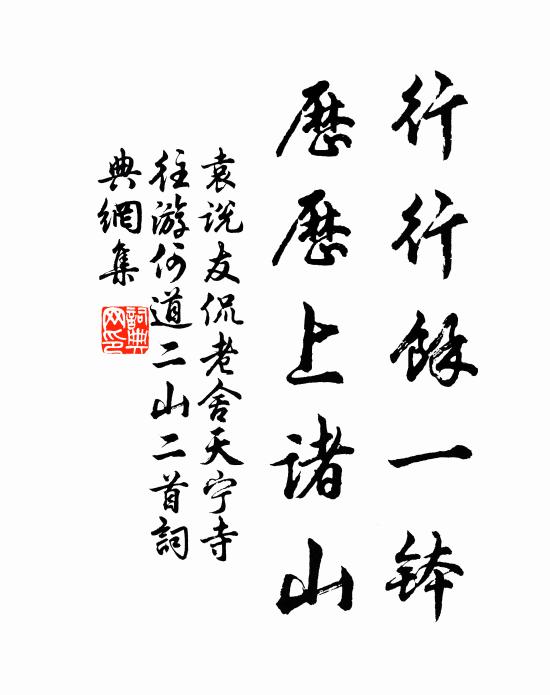 行行餘一钵
歷歷上诸山
袁说友侃老舍天宁寺
往游何道二山二首詞
典網集
詞典
网印